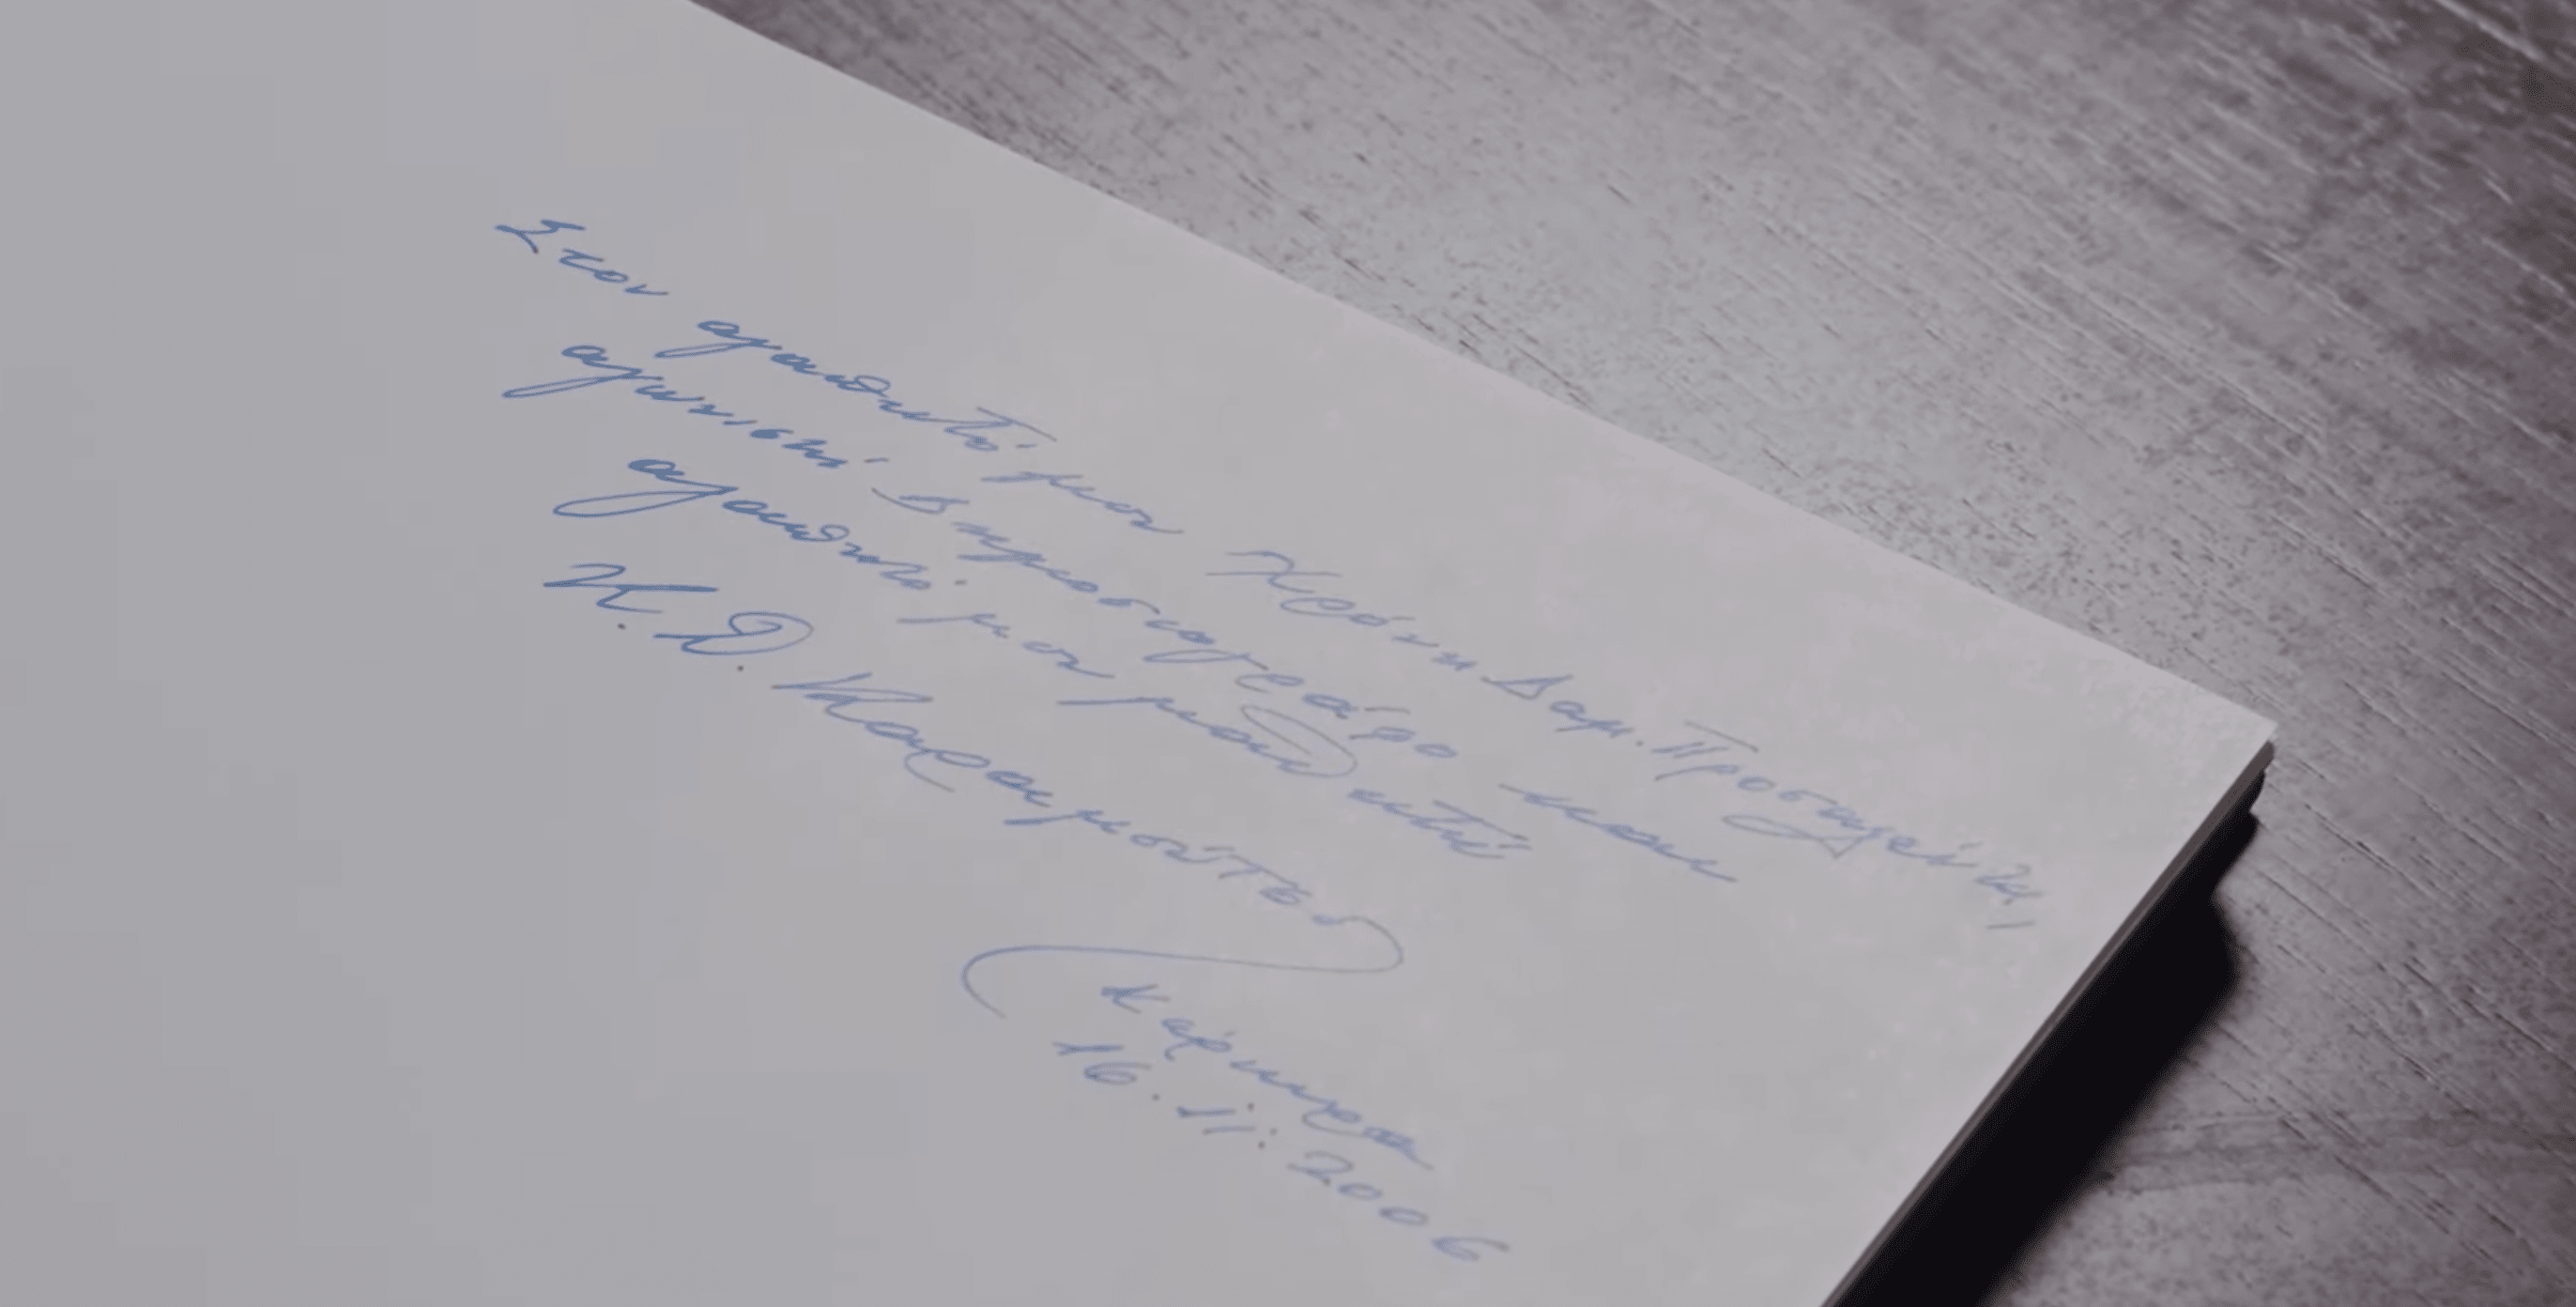 Στον αγαπητό μου Χρόνη Δαμ.
αγωνιστή Δημοσιογράφο και
αγαπητό μου μαθητή
Κ. Θ. Καραμούτσο
Κέρκυρα
16. 11. 2006